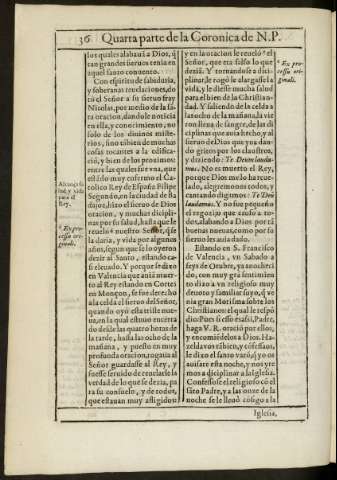 36 Quarta parte de la Coronica de N.P.
los quales alabauã a Dios, q̃
tan grandes sieruos tenia en
aquel santo conuento.
Con espiritu de sabiduria,
y soberanas reuelaciones, do
tó el Señor a su sieruo fray
Nicolas, por medio de la sa
ta oracion, dandole noticia
en ella, y conocimiento, no
solo de los diuinos miste
rios, sino tãbien de muchas
cosas tocantes a la edifica
ció, y bien de los proximos:
entre las quales fue vna, que
estãdo muy enfermo el Ca
tolico Rey de España Filipe
Segundo, en la ciudad de Ba
dajoz, hizo el sieruo de Dios
oracion, y muchas diciplinas
por su salud, hasta que le
reuelo a nuestro Señor, q̃ se
la daria, y vida por algunos
años, segun que se lo oyeron
dezir al Santo, estando ca-
si eleuado. Y porque se dixo
en Valencia que auia muer-
to el Rey estando en Cortes
en Monçon, se fue derecho
a la celda el sieruo del Señor,
quando oyó esta triste nue-
ua, en la qual estuuo encerra
do desde las quatro horas de
la tarde, hasta las ocho de la
mañana, y puesto en muy
profunda oracion, rogaua al
Señor guardasse al Rey, y
fuesse seruido de reuelarle la
verdad de lo que se dezia, pa
ra su consuelo, y de todos,
que estauan muy afligidos:
Alcança sa
lud, y vida
para el
Rey.
a Ex pro-
cessu ori-
ginali.
y en la oracion le reuelò a el
Señor, que era falso lo que
dezia. Y tornandose a dici-
plinar, le rogó le alargasse la
vida, y le diesse mucha salud
para el bien de la Christian-
dad. Y saliendo de la celda a
las ocho de la mañana, la vie
ron llena de sangre, de las di
ciplinas que auia hecho, y al
sieruo de Dios que yua dan
do gritos por los claustros,
y diziendo: Te Deum lauda-
mus. No es muerto el Rey,
porque Dios me lo ha reue-
lado, alegremonos todos, y
cantando digamos: Te Deũ
laudamus. Y no fue pequeño
el regozijo que causò a to-
dos, alabando a Dios por tã
buenas nueuas, como por su
sieruo les auia dado.
Estando en S. Francisco
de Valencia, vn Sabado a
seys de Otubre, ya anocheci
do, con muy grã sentimien
to dixo a vn religioso muy
deuoto y familiar suyo, q̃ ve
nia gran Morisma sobre los
Christianos: el qual le respõ
dio: Pues si esso es assi, Padre,
haga V. R. oració por ellos,
y encomiendelos a Dios. Ha
zelda vos tãbien, y cõfessaos,
le dixo el santo varõ, q̃ yo os
auisare esta noche, y nos yre
mos a diciplinar a la Iglesia.
Confessose el religioso có el
sãto Padre, y a las onze de la
noche se le lleuò consigo a la
a Ex pro-
cessu ori-
ginali.
Iglesia,